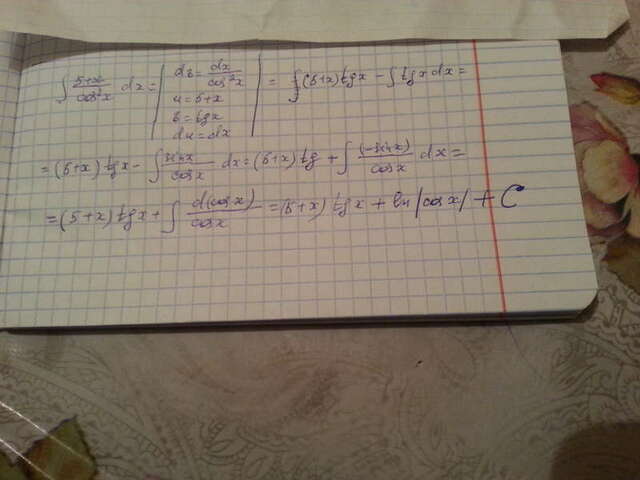 ∫ (5+x)/cos²x dx = | dв = dx/cos²x | = ∫(5+x)tgx − ∫tgx dx =
u = 5+x
в = tgx
du = dx
= (5+x) tgx − ∫ sinx/cosx dx = (5+x) tg + ∫ (−sinx)/cosx dx =
= (5+x) tgx + ∫ d(cosx)/cosx = (5+x) tgx + ln|cosx| + C